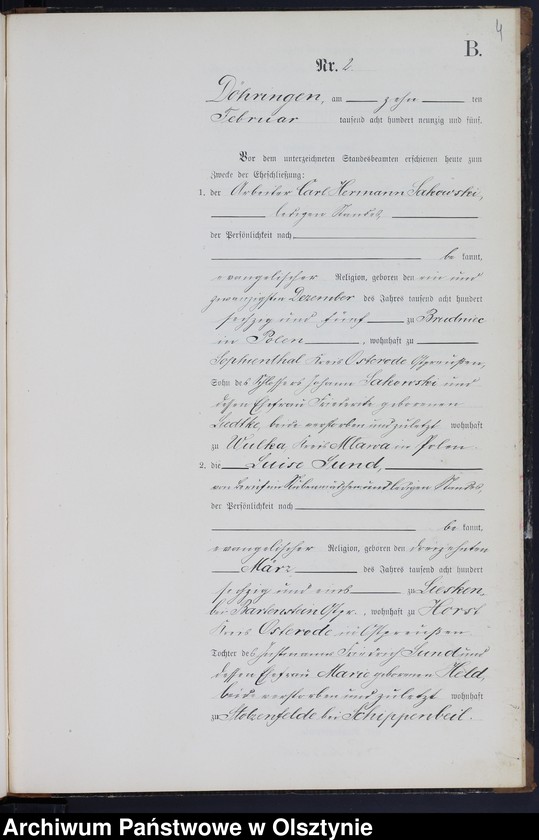 4
B.
Nr. 2.
Döhringen, am zehn ten
Februar tausend acht hundert neunzig und fünf.
Vor dem unterzeichneten Standesbeamten erschienen heute zum
Zwecke der Eheschließung:
1. der Arbeiter Carl Hermann Sakowski,
ledigen Standes,
der Persönlichkeit nach
be kannt,
evangelischer Religion, geboren den ein und
zwanzigsten Dezember des Jahres tausend acht hundert
sechzig und fünf zu
in Polen, wohnhaft zu
Sophienthal Kreis Osterode Ostpreußen,
Sohn des Schlossers Johann Sakowski und
dessen Ehefrau Friederike geborenen
beide verstorben und zuletzt wohnhaft
zu Wulka Kreis Mlawa in Polen
2. die Luise Sund,
und ledigen Standes,
der Persönlichkeit nach
be kannt,
evangelischer Religion, geboren den dreizehnten
März des Jahres tausend acht hundert
sechzig und eins zu Liesken
bei Bartenstein Ostpr., wohnhaft zu Horst
Kreis Osterode in Ostpreußen
Tochter des Instmanns Friedrich Sund und
dessen Ehefrau Marie geborenen Held,
beide verstorben und zuletzt wohnhaft
zu Stolzenfelde bei Schippenbeil.
Archiwum Państwowe w Olsztynie